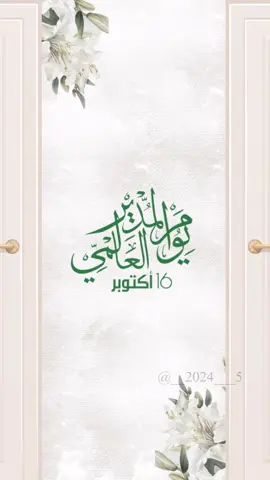 يوم المدير
العالمي
16 أكتوبر
@__2024___5